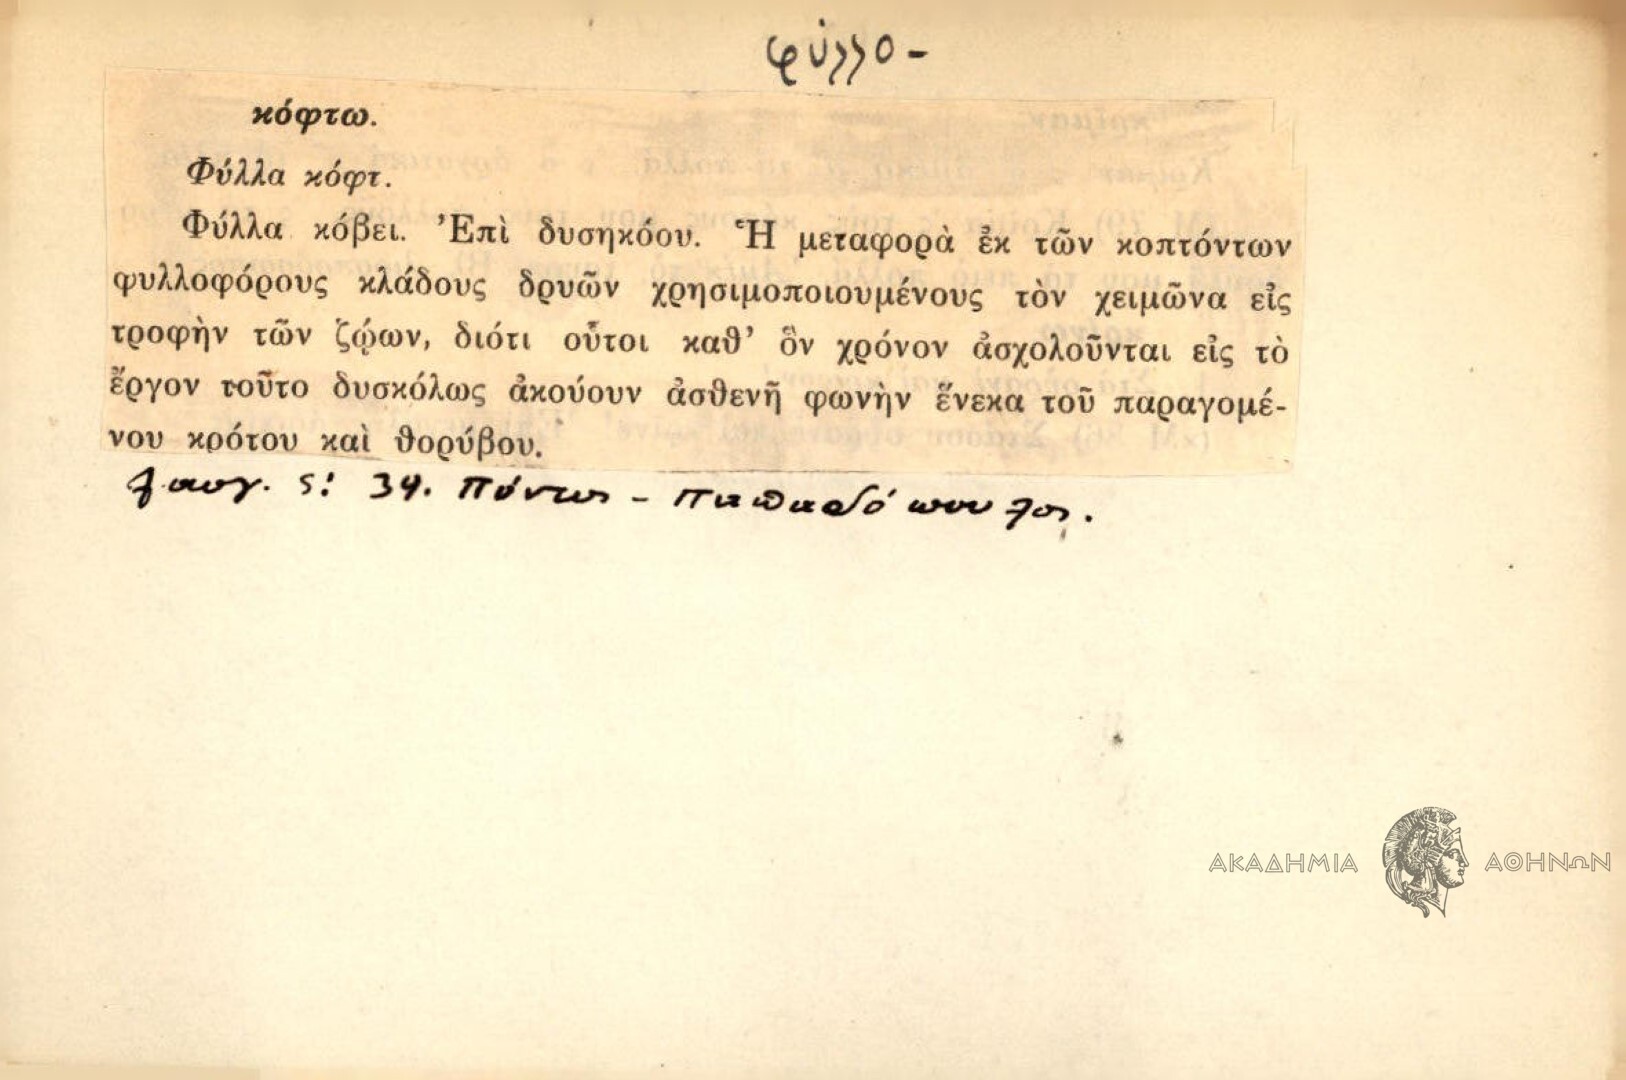 φύλλο -
κόφτω.
Φύλλα κόφτ.
Φύλλα κόβει. Ἐπὶ δυσηκόου. Ἡ μεταφορὰ ἐκ τῶν κοπτόντων
φυλλοφόρους κλάδους δρυῶν χρησιμοποιουμένους τὸν χειμῶνα εἰς
τροφὴν τῶν ζῴων, διότι οὗτοι καθ' ὃν χρόνον ἀσχολοῦνται εἰς τὸ
ἔργον τοῦτο δυσκόλως ἀκούουν ἀσθενῆ φωνὴν ἕνεκα τοῦ παραγομέ-
νου κρότου καὶ θορύβου.
λαογ. ς! 34. Πόντος - Παπαδόπουλος.
ΑΚΑΔΗΜΙΑ ΑΘΗΝΩΝ